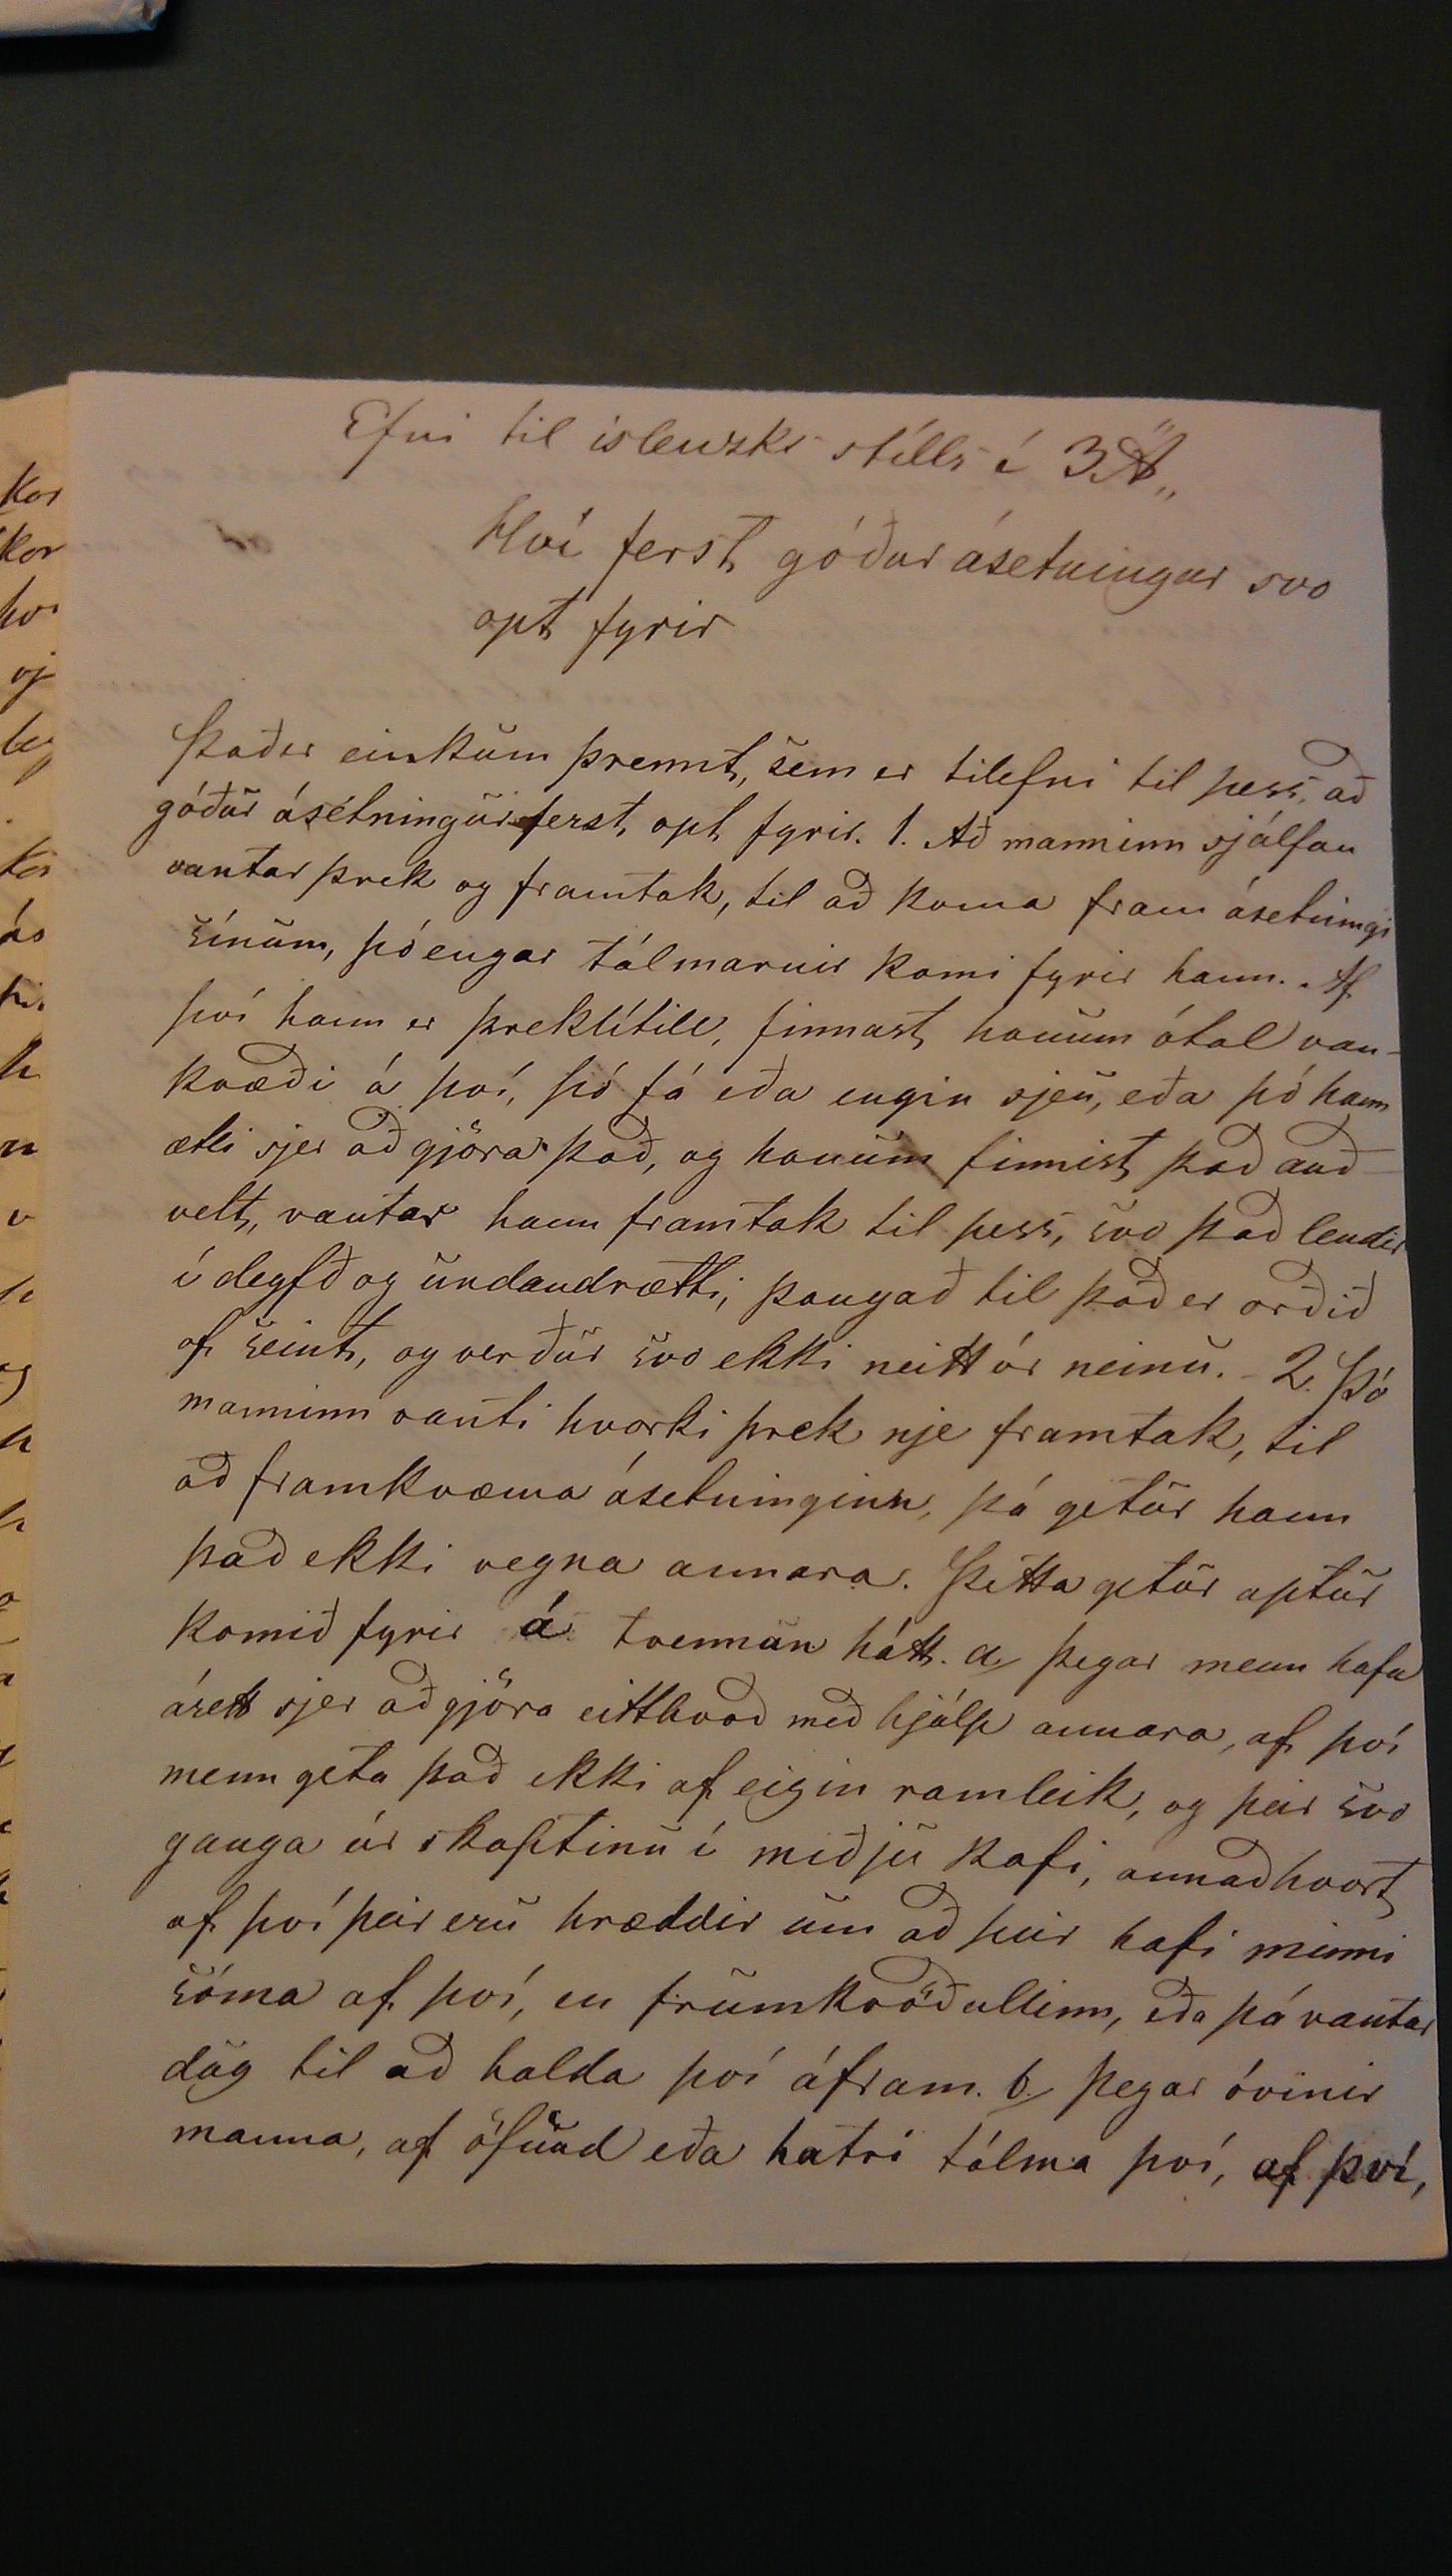 Efni til íslenzks stíls í 3 A „
Hví ferst góður ásetningur svo
opt fyrir
Það er einkum þrennt, sem er tilefni til þess, að
góður ásetningur ferst opt fyrir. 1. Að manninn sjálfan
vantar þrek og framtak, til að koma fram ásetningi
sínum, þó engar tálmarnir komi fyrir hann. Af
því hann er þreklítill, finnast honum ótal van-
kvæði á því, þó fá eða engin sjeu, eða þó hann
ætli sjer að gjöra það, og honum finnist það auð-
velt, vantar hann framtak til þess, svo það lendir
í deyfð og undandrætti, þangað til það er orðið
of seint, og verður svo ekki neitt úr neinu. - 2. Þó
manninn vanti hvorki þrek nje framtak, til
að framkvæma ásetninginn, þá getur hann
það ekki vegna annara. Þetta getur aptur
komið fyrir á tvennan hátt. a, þegar menn hafa
ásett sjer að gjöra eitthvað með hjálp annara, af því
menn geta það ekki af eigin ramleik, og þeir svo
ganga úr skaptinu í miðju kafi, annaðhvort
af því þeir eru hræddir um að þeir hafi minni
sóma af því, en frumkvöðullinn, eða þá vantar
dug til að halda því áfram. b. þegar óvinir
manna, af öfund eða hatri tálma því, af því,
kor
kor